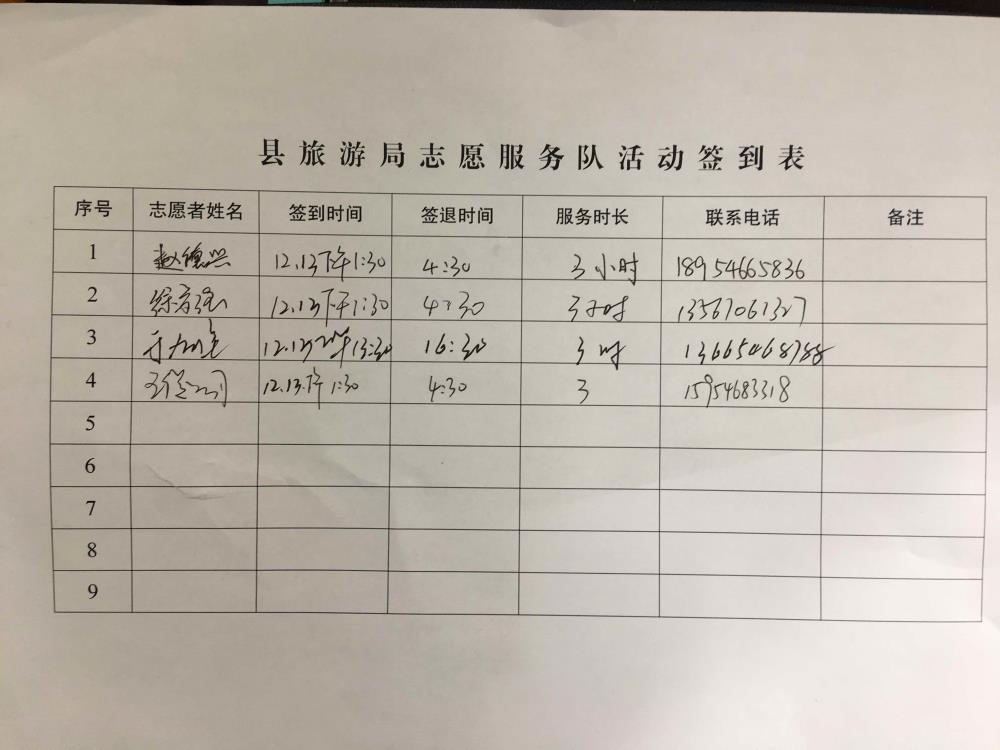 县旅游局志愿服务队活动签到表
序号 志愿者姓名 签到时间 签退时间 服务时长 联系电话 备注
1 赵德兴 12.13下午1:30 4:30 3小时 18954665836
2 12.13下午1:30 4:30 3小时 13561061327
3 12.13下午13:30 16:30 3时
4 12.13.下午1:30 4:30 3 15954683318
5
6
7
8
9